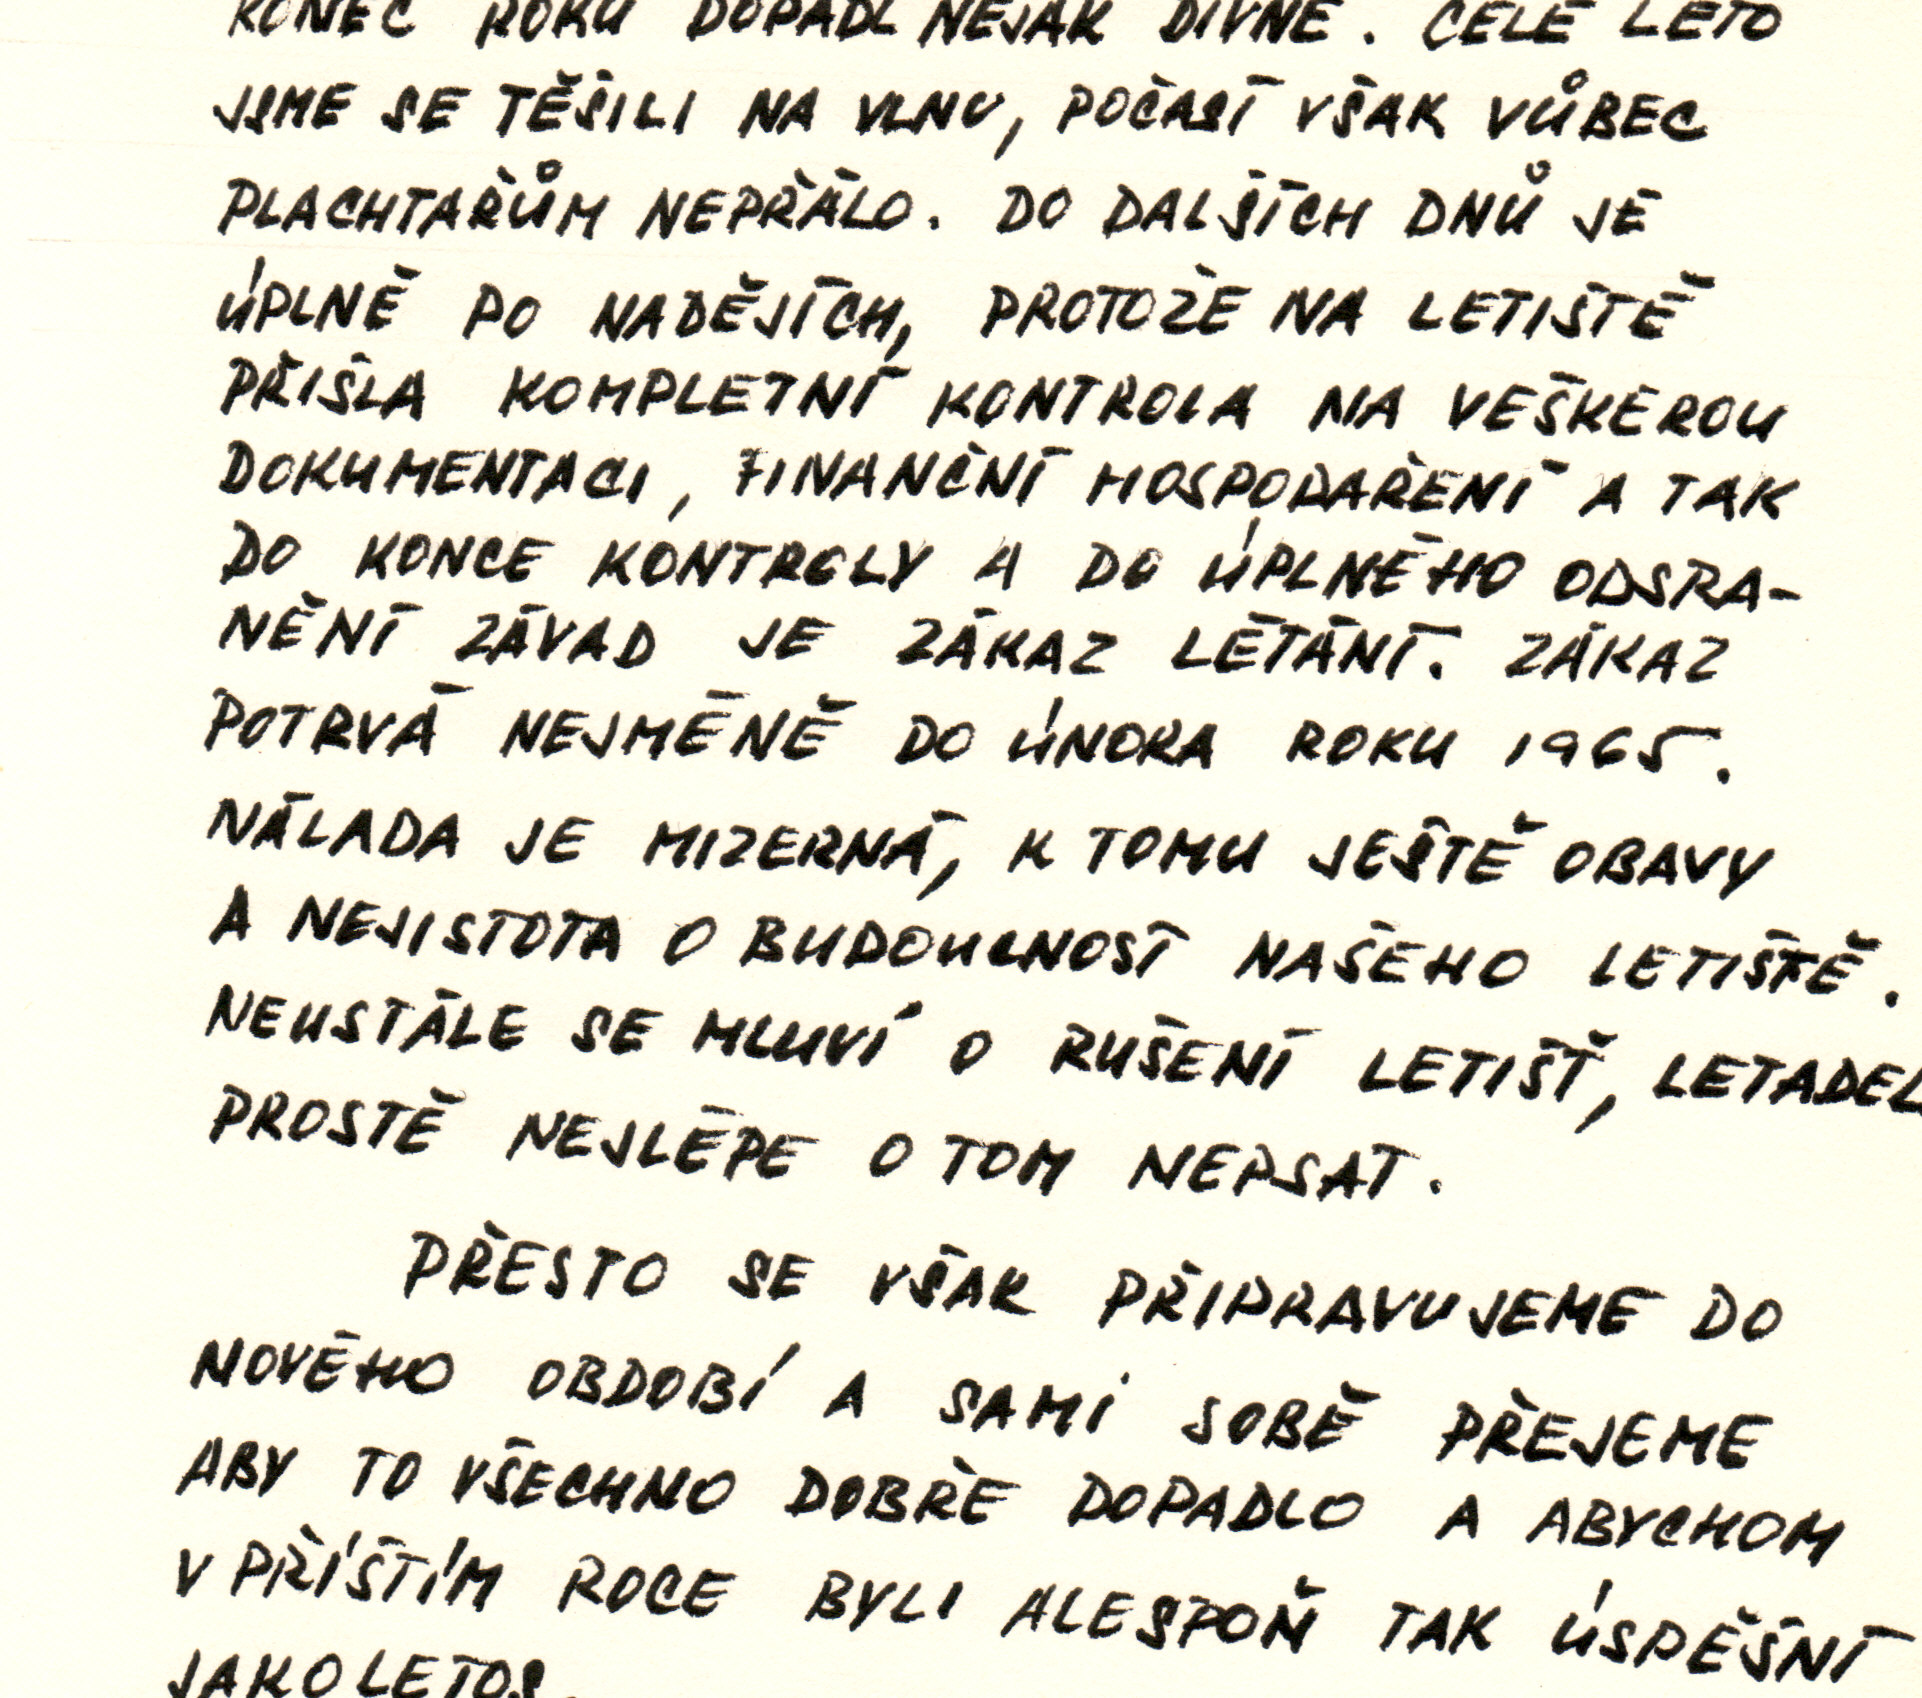 KONEC ROKU DOPADL NĚJAK DIVNĚ. CELÉ LÉTO
JSME SE TĚŠILI NA VLNU, POČASÍ VŠAK VŮBEC
PLACHTAŘŮM NEPŘÁLO. DO DALŠÍCH DNŮ JE
ÚPLNĚ PO NADĚJÍCH, PROTOŽE NA LETIŠTĚ
PŘIŠLA KOMPLETNÍ KONTROLA NA VEŠKEROU
DOKUMENTACI, FINANČNÍ HOSPODAŘENÍ A TAK
DO KONCE KONTROLY A DO ÚPLNÉHO ODSRA-
NĚNÍ ZÁVAD JE ZÁKAZ LÉTÁNÍ. ZÁKAZ
POTRVÁ NEJMÉNĚ DO ÚNORA ROKU 1965.
NÁLADA JE MIZERNÁ, K TOMU JEŠTĚ OBAVY
A NEJISTOTA O BUDOUCNOST NAŠEHO LETIŠTĚ.
NEUSTÁLE SE MLUVÍ O RUŠENÍ LETIŠŤ, LETADEL
PROSTĚ NEJLÉPE O TOM NEPSAT.
PŘESTO SE VŠAK PŘIPRAVUJEME DO
NOVÉHO OBDOBÍ A SAMI SOBĚ PŘEJEME
ABY TO VŠECHNO DOBŘE DOPADLO A ABYCHOM
V PŘÍŠTÍM ROCE BYLI ALESPOŇ TAK ÚSPĚŠNÍ
JAKO LETOS.